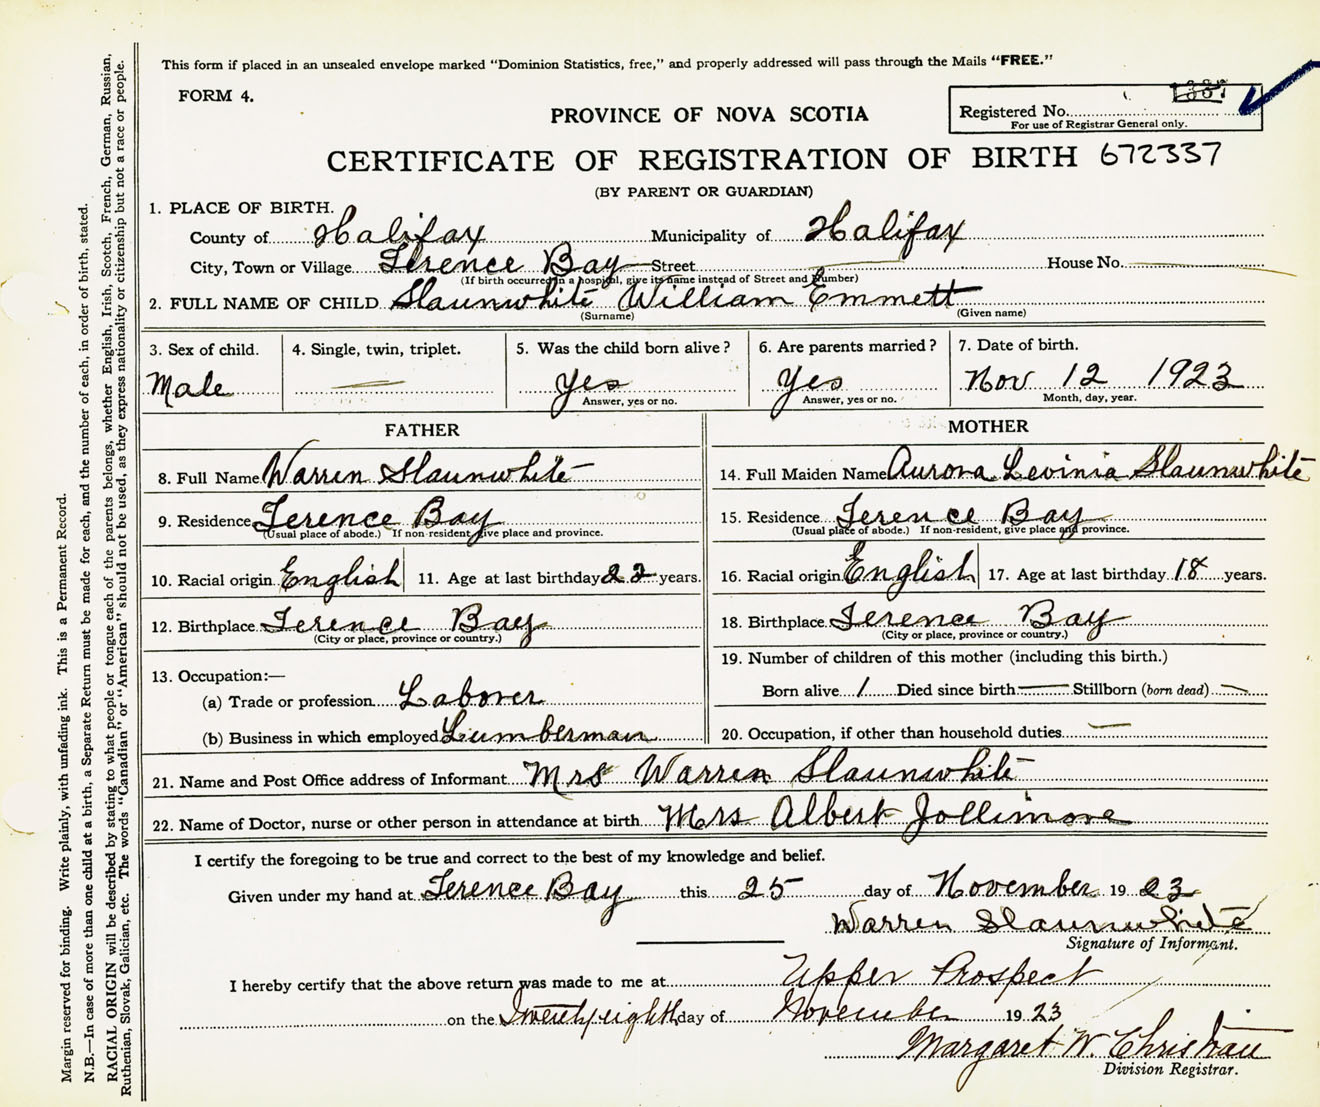 This form if placed in an unsealed envelope marked "Dominion Statistics, free," and properly addressed will pass through the Mails "FREE."
FORM 4.
1387
Registered No.
For use of Registrar General only.
PROVINCE OF NOVA SCOTIA
CERTIFICATE OF REGISTRATION OF BIRTH 672337
(BY PARENT OR GUARDIAN)
1. PLACE OF BIRTH.
County of Halifax Municipality of Halifax
City, Town or Village Terence Bay Street House No.
(If birth occurred in a hospital, give its name instead of Street and Number)
2. FULL NAME OF CHILD Slaunwhite William Emmett
(Surname) (Given name)
3. Sex of child. 4. Single, twin, triplet. 5. Was the child born alive? 6. Are parents married? 7. Date of birth.
Male Yes Yes Nov 12 1923
Answer, yes or no. Answer, yes or no. Month, day, year.
FATHER MOTHER
8. Full Name Warren Slaunwhite 14. Full Maiden Name Aurora Levinia Slaunwhite
9. Residence Terence Bay 15. Residence Terence Bay
(Usual place of abode.) If non-resident, give place and province. (Usual place of abode.) If non-resident, give place and province.
10. Racial origin English 11. Age at last birthday 22 years. 16. Racial origin English 17. Age at last birthday 18 years.
12. Birthplace Terence Bay 18. Birthplace Terence Bay
(City or place, province or country.) (City or place, province or country.)
13. Occupation:— 19. Number of children of this mother (including this birth.)
(a) Trade or profession Laborer Born alive 1 Died since birth Stillborn (born dead)
(b) Business in which employed Lumberman 20. Occupation, if other than household duties
21. Name and Post Office address of Informant Mrs Warren Slaunwhite
22. Name of Doctor, nurse or other person in attendance at birth Mrs Albert Jollimore
I certify the foregoing to be true and correct to the best of my knowledge and belief.
Given under my hand at Terence Bay this 25 day of November 1923
Warren Slaunwhite
Signature of Informant.
I hereby certify that the above return was made to me at Upper Prospect
on the Twentyeighth day of November 1923
Margaret W. Christian
Division Registrar.
Margin reserved for binding. Write plainly, with unfading ink. This is a Permanent Record.
N.B.—In case of more than one child at a birth, a Separate Return must be made for each, and the number of each, in order of birth, stated.
RACIAL ORIGIN will be described by stating to what people or tongue each of the parents belongs, whether English, Irish, Scotch, French, German, Russian,
Ruthenian, Slovak, Galician, etc. The words "Canadian" or "American" should not be used, as they express nationality or citizenship but not a race or people.